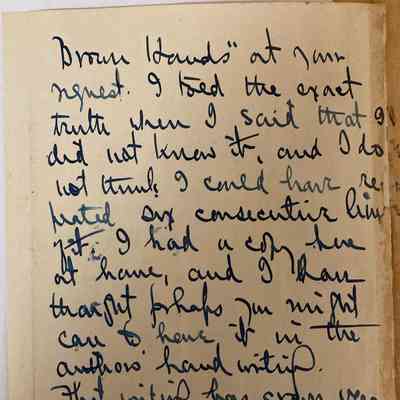 Brown Hands" at your
request. I told the exact
truth when I said that I
did not know it, and I do
not think I could have re
peated six consecutive lines
of it. I had a copy here
at home, and I have
thought perhaps you might
care to have it in the
authors' handwriting.
That writing has